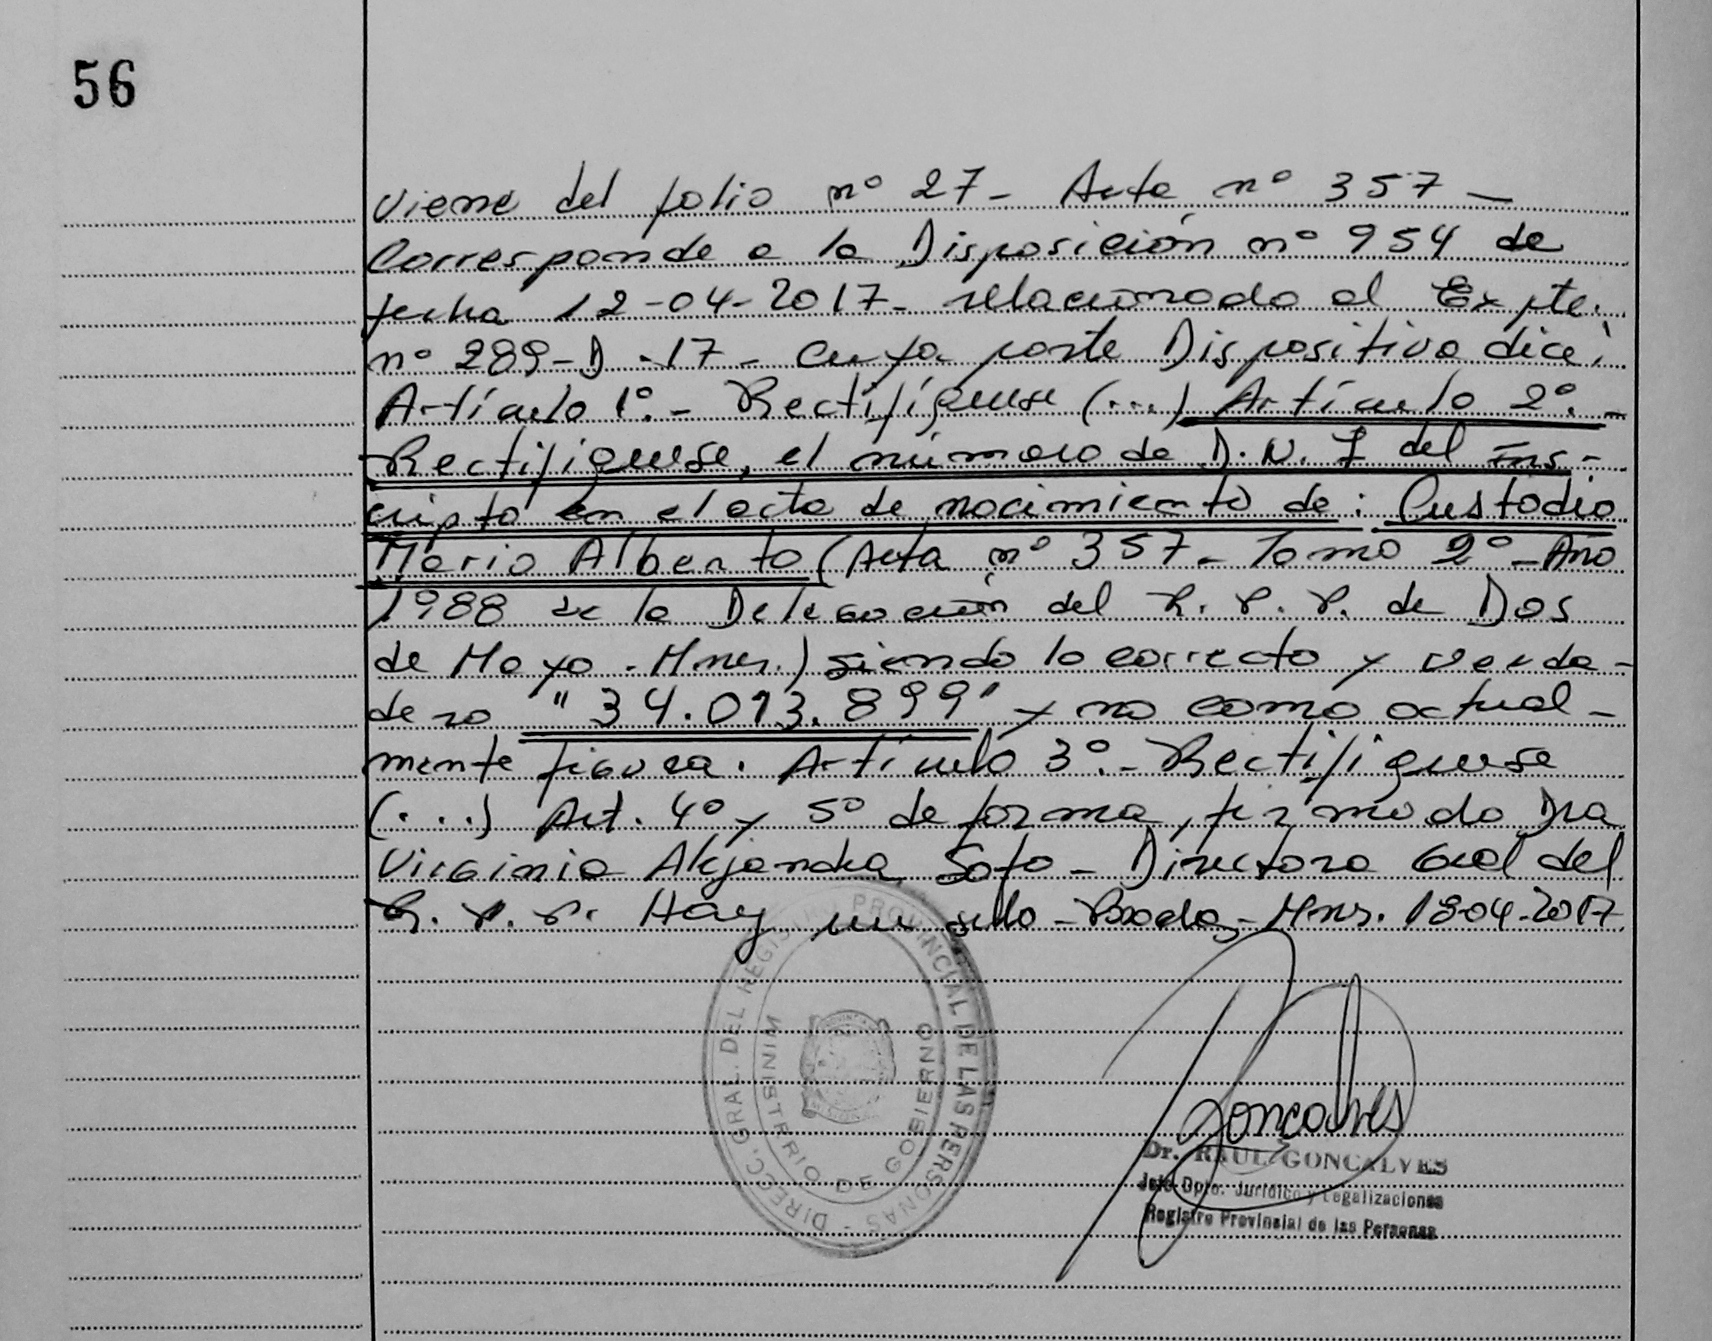 56
Viene del folio nº 27 - Acta nº 357 -
Corresponde a la Disposición nº 954 de
fecha 12-04-2017 - relacionado al Expte.
nº 289-D-17 - cuya parte Dispositiva dice:
Artículo 1º.- Rectifíquese (...) Artículo 2º.-
Rectifiquese, el número de D.N.I del Ins-
cripto en el acta de nacimiento de: Custodio
Mario Alberto (Acta nº 357 - Tomo 2º - Año
1988 de la Delegación del R.P.P. de Dos
de Mayo - Mnes.) siendo lo correcto y verda-
dero "34.013.899" y no como actual-
mente figura. Artículo 3º.- Rectifiquese
(...) Art. 4º y 5º de forma, firmado Dra
Virginia Alejandra Soto - Directora Gral del
R.P.P. Hay un sello - Posadas, Mnes. 18-04-2017
DIRECC. GRAL. DEL REGISTRO PROVINCIAL DE LAS PERSONAS -
MINISTERIO DE GOBIERNO
Goncalves
Dr. RAUL GONCALVES
Jefe Dpto. Jurídico y Legalizaciones
Registro Provincial de las Personas